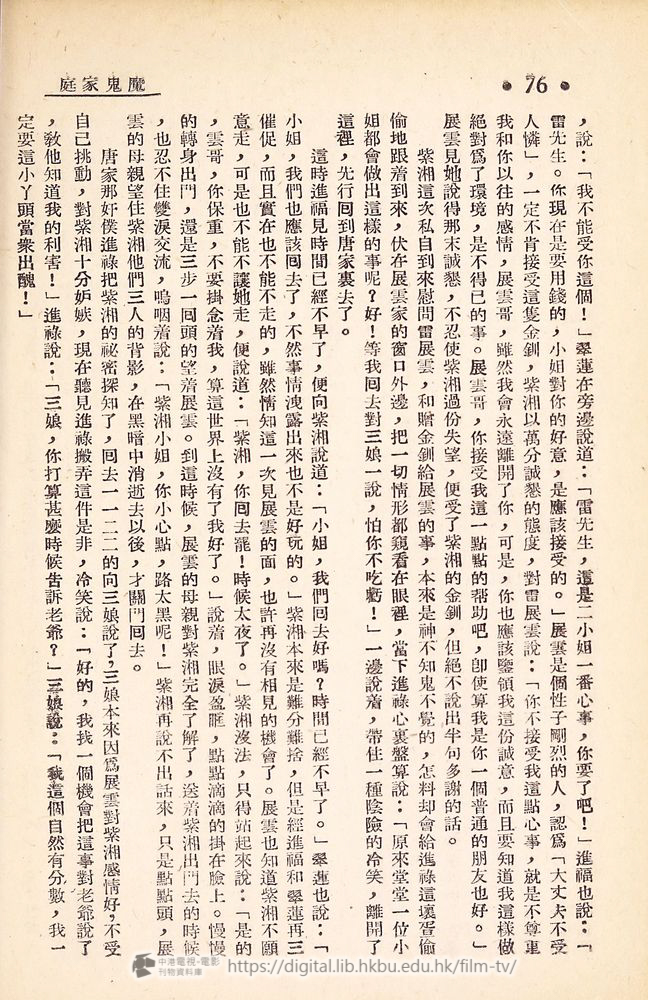 魔鬼家庭
• 76 •
，說：「我不能受你這個！」翠蓮在旁邊說道：「雷先生，這是二小姐一番心事，你要了吧！」進福也說：「
雷先生。你現在是要用錢的，小姐對你的好意，是應該接受的。」展雲是個性子剛烈的人，認爲「大丈夫不受
人憐」，一定不肯接受這隻金釧，紫湘以萬分誠懇的態度，對雷展雲說：「你不接受我這點心事，就是不尊重
我和你以往的感情，展雲哥，雖然我會永遠離開了你，可是，你也應該鑒領我這份誠意，而且要知道我這樣做
絕對爲了環境，是不得已的事。展雲哥，你接受我這一點點的帮助吧，卽使算我是你一個普通的朋友也好。」
展雲見她說得那末誠懇，不忍使紫湘過份失望，便受了紫湘的金釧，但絕不說出半句多謝的話。
紫湘這次私自到來慰問雷展雲，和贈金釧給展雲的事，本來是神不知鬼不覺的，怎料却會給進祿這壞蛋偷
偷地跟着到來，伏在展雲家的窗口外邊，把一切情形都窺看在眼裡，當下進祿心裏盤算說：「原來堂堂一位小
姐都會做出這樣的事呢？好！等我囘去對三娘一說，怕你不吃虧！」一邊說着，帶住一種陰險的冷笑，離開了
這裡，先行囘到唐家裏去了。
這時進福見時間已經不早了，便向紫湘說道：「小姐，我們囘去好嗎？時間已經不早了。」翠蓮也說：「
小姐，我們也應該囘去了，不然事情洩露出來也不是好玩的。」紫湘本來是難分難捨，但是經進福和翠蓮再三
催促，而且實在也不能不走的，雖然情知這一次見展雲的面，也許再沒有相見的機會了。展雲也知道紫湘不願
意走，可是也不能不讓她走，便說道：「紫湘，你囘去罷！時候太夜了。」紫湘沒法，只得站起來說：「是的
，雲哥，你保重，不要掛念着我，算這世界上沒有了我好了。」說着，眼淚盈眶，點點滴滴的掛在臉上。慢慢
的轉身出門，還是三步一囘頭的望着展雲。到這時候，展雲的母親對紫湘完全了解了，送着紫湘出門去的時候
，也忍不住雙淚交流，嗚咽着說：「紫湘小姐，你小心點，路太黑呢！」紫湘再說不出話來，只是點點頭，展
雲的母親望住紫湘他們三人的背影，在黑暗中消逝去以後，才關門囘去。
唐家那奸僕進祿把紫湘的祕密探知了，囘去一一二二的向三娘說了，三娘本來因爲展雲對紫湘感情好，不受
自己挑動，對紫湘十分妒嫉，現在聽見進祿搬弄這件是非，冷笑說：「好的，我找一個機會把這事對老爺說了
，敎他知道我的利害！」進祿說：「三娘，你打算甚麼時候告訴老爺？」三娘說：「我這個自然有分數，我一
定要這小丫頭當衆出醜！」
中港電視·電影
刊物資料庫
https://digital.lib.hkbu.edu.hk/film-tv/